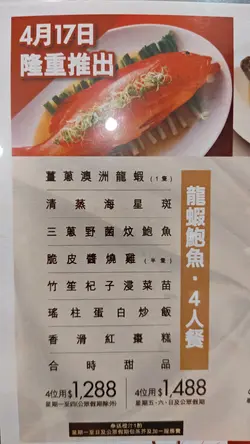 4月17日
隆重推出
薑蔥澳洲龍蝦(1隻)
清蒸海星斑
三蔥野菌炆鮑魚
脆皮醬燒雞(半隻)
竹笙杞子浸菜苗
瑤柱蛋白炒飯
香滑紅棗糕
合時甜品
龍蝦鮑魚·4人餐
4位用$1,288
星期一至四(公眾假期除外)
4位用$1,488
星期五、六、日及公眾假期